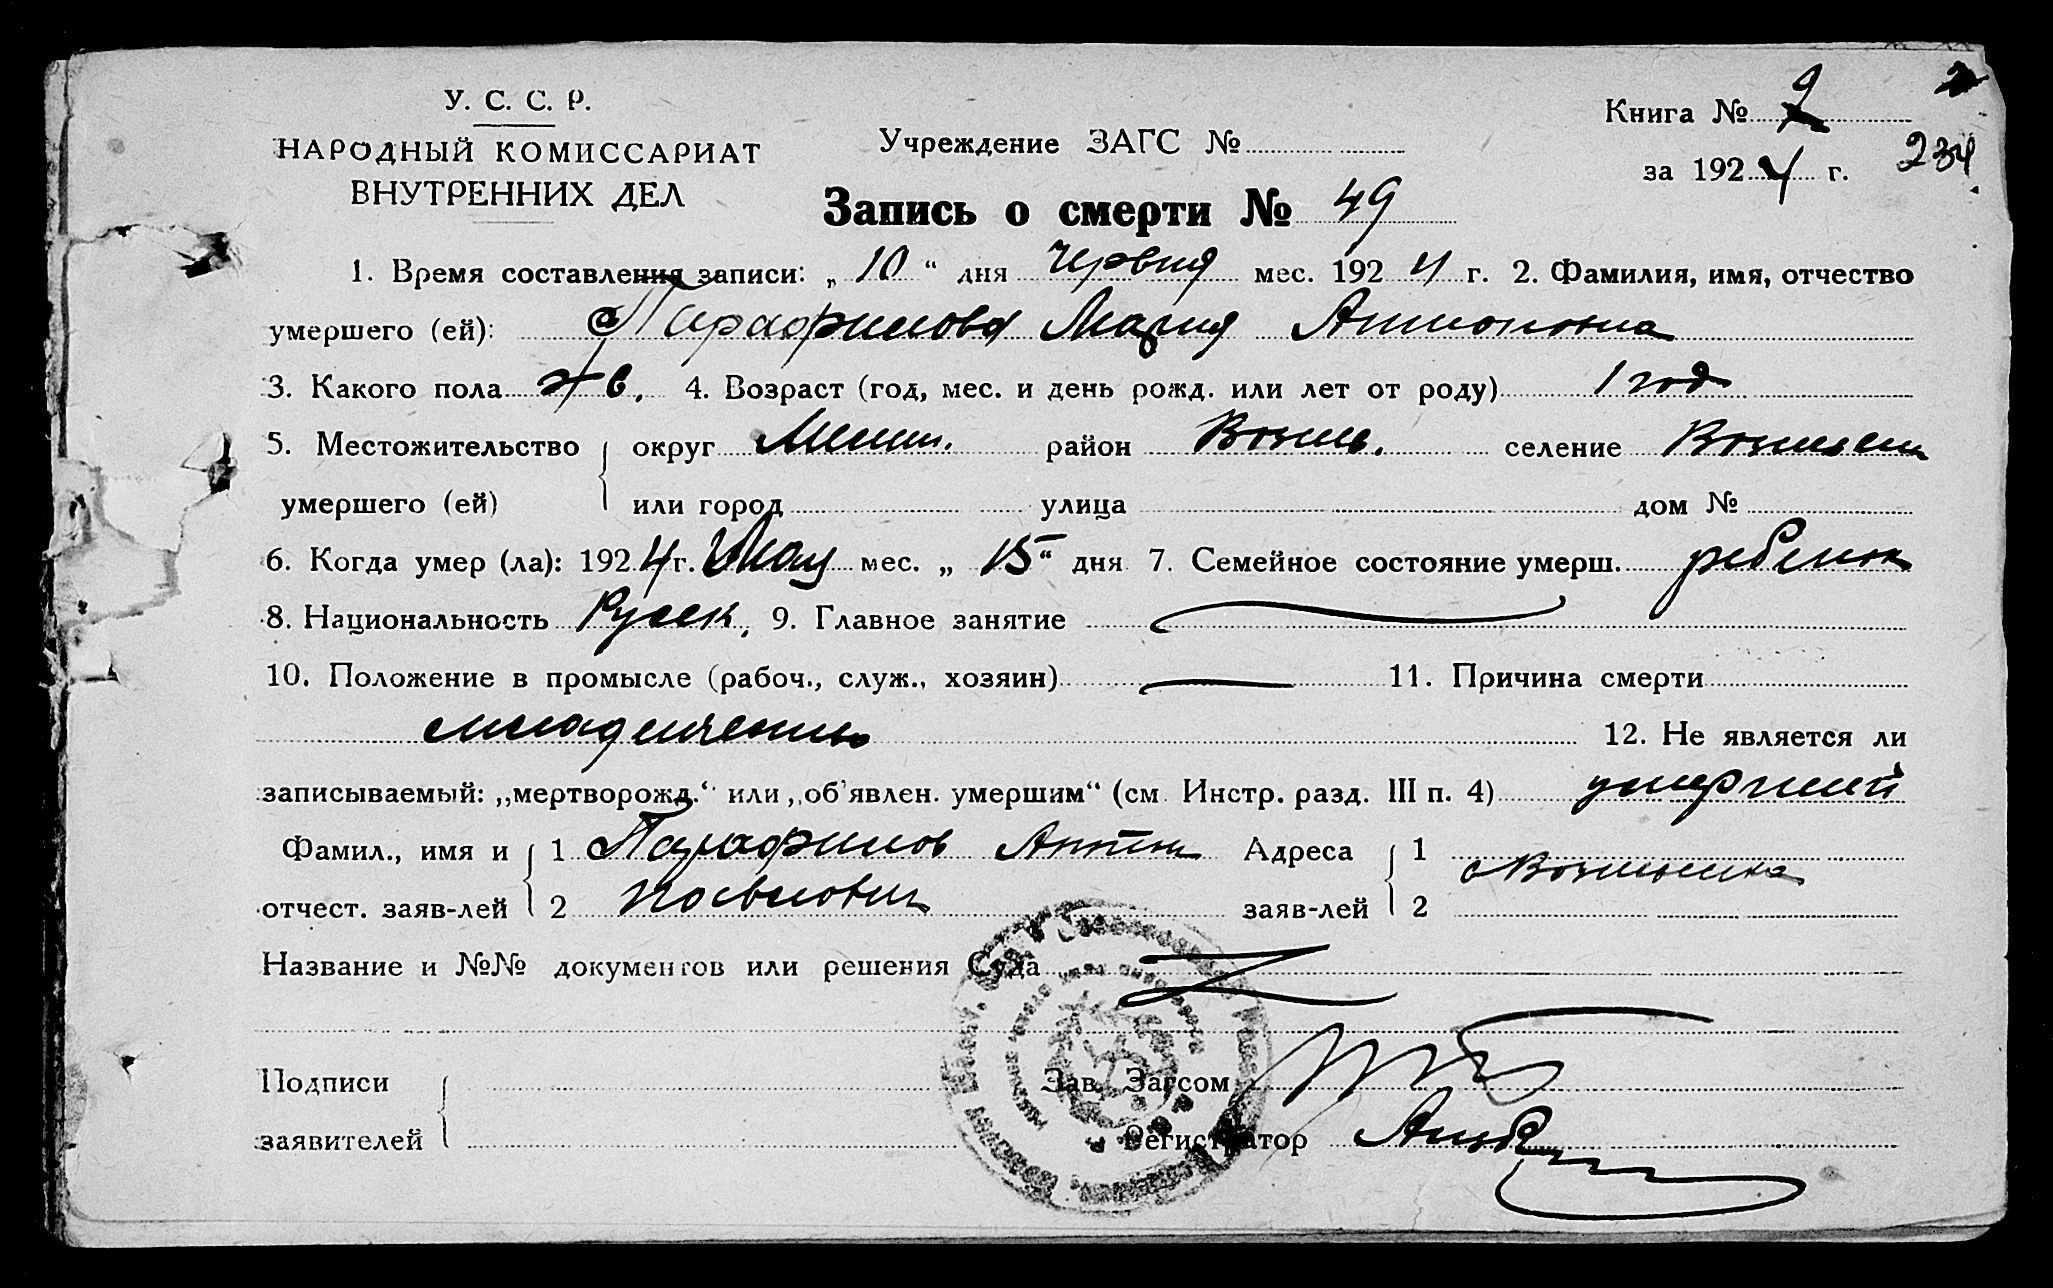 У. С. С. Р.
НАРОДНЫЙ КОМИССАРИАТ
ВНУТРЕННИХ ДЕЛ
Учреждение ЗАГС №
Книга № 2
за 1924 г.
234
Запись о смерти № 49
1. Время составления записи: „10“ дня Червня мес. 1924 г. 2. Фамилия, имя, отчество
умершего (ей): Парафилова Мария Антоновна
3. Какого пола ж 4. Возраст (год, мес. и день рожд. или лет от роду) 1 год
5. Местожительство округ район селение
умершего (ей) или город улица дом №
6. Когда умер (ла): 1924 г. Мая мес. „15“ дня 7. Семейное состояние умерш. ребенок
8. Национальность Русск. 9. Главное занятие
10. Положение в промысле (рабоч., служ., хозяин) 11. Причина смерти
12. Не является ли
записываемый: „мертворожд.“ или „об'явлен. умершим“ (см. Инстр. разд. III п. 4) умерший
Фамил., имя и 1 Парафилов Антон Адреса 1
отчест. заяв-лей 2 заяв-лей 2
Название и №№ документов или решения Суда
Подписи Зав. Загсом
заявителей Регистратор